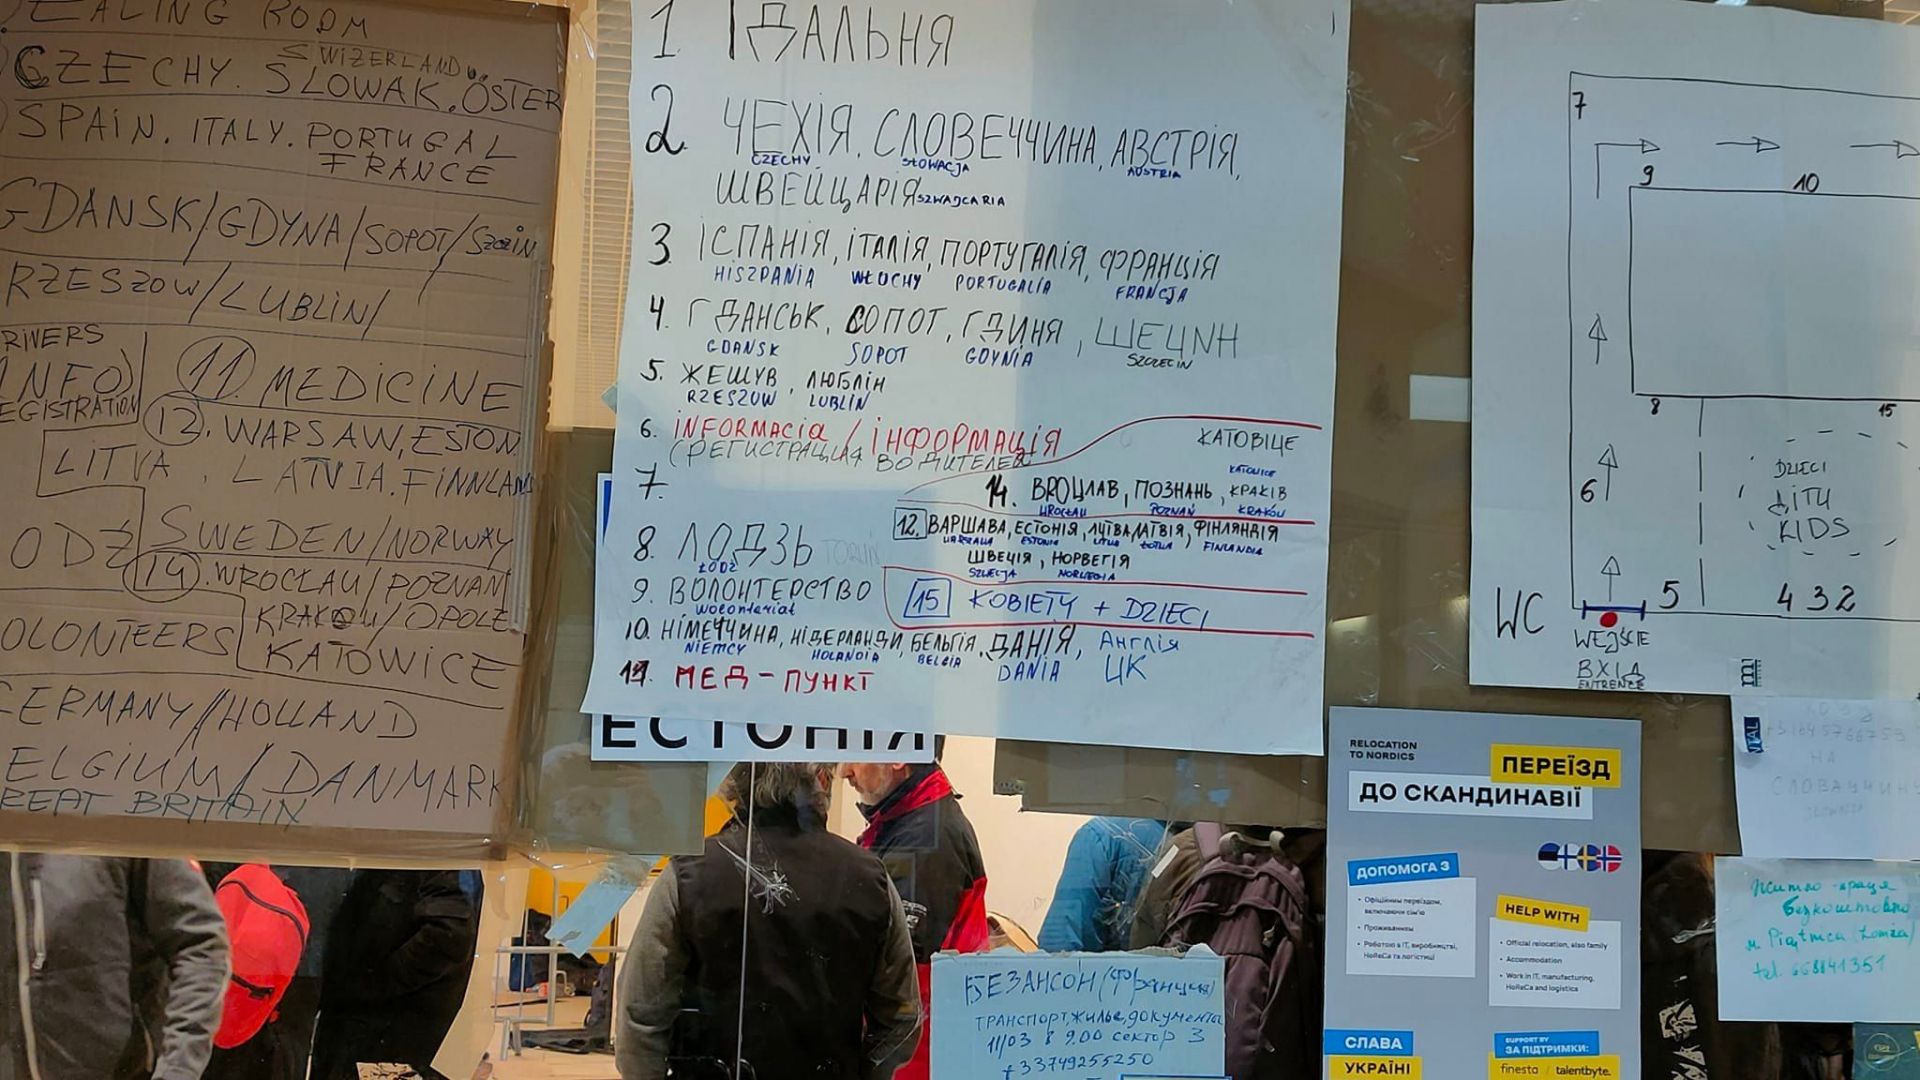 EALING ROOM
SWIZERLAND
CZECHY. SLOWAK. ÖSTER
SPAIN. ITALY. PORTUGAL
FRANCE
GDANSK/GDYNA/SOPOT/
RZESZOW/LUBLIN/
RIVERS
INFO
EGISTRATION
11 MEDICINE
12. WARSAW, ESTON
LITVA, LATVIA. FINNLAND
SWEDEN/NORWAY
ODŹ
14. WROCŁAW/POZNAŃ
KRAKOW/OPOLE
KATOWICE
OLONTEERS
GERMANY/HOLLAND
ELGIUM/DANMARK
REAT BRITAIN
1. ЇДАЛЬНЯ
2. ЧЕХІЯ, СЛОВЕЧЧИНА, АВСТРІЯ,
CZECHY SŁOWACJA AUSTRIA
ШВЕЙЦАРІЯ SZWAJCARIA
3. ІСПАНІЯ, ІТАЛІЯ, ПОРТУГАЛІЯ, ФРАНЦІЯ
HISZPANIA WŁOCHY PORTUGALIA FRANCJA
4. ГДАНСЬК, СОПОТ, ГДИНЯ, ШЕЦИН
GDANSK SOPOT GDYNIA SZCZECIN
5. ЖЕШУВ, ЛЮБЛІН
RZESZOW LUBLIN
6. INFORMACIA / ІНФОРМАЦІЯ
(РЕГИСТРАЦИЯ ВОДИТЕЛЕЙ
7.
КАТОВІЦЕ
KATOWICE
14. ВРОЦЛАВ, ПОЗНАНЬ, КРАКІВ
WROCŁAW POZNAŃ KRAKÓW
12. ВАРШАВА, ЕСТОНІЯ, ЛИТВА, ЛАТВІЯ, ФІНЛЯНДІЯ
WARSZAWA ESTONIA LITWA ŁOTWA FINLANDIA
ШВЕЦІЯ, НОРВЕГІЯ
SZWECJA NORWEGIA
8. ЛОДЗЬ TORUŃ
ŁÓDŹ
9. ВОЛОНТЕРСТВО
15 KOBIETY + DZIECI
10. НІМЕЧЧИНА, НІДЕРЛАНДИ, БЕЛЬГІЯ, ДАНІЯ, Англія
NIEMCY HOLANDIA BELGIA DANIA ЦК
11. МЕД-ПУНКТ
ЕСТОНІЯ
7
9 10
8 15
DZIECI
ДІТИ
KIDS
6
5 4 3 2
WC
WEJŚCIE
ВХІД
ENTRENCE
RELOCATION
TO NORDICS
ПЕРЕЇЗД
ДО СКАНДИНАВІЇ
ДОПОМОГА З
• Офіційним переїздом,
включаючи сім'ю
• Проживанням
• Роботою в ІТ, виробництві,
HoReCa та логістиці
HELP WITH
• Official relocation, also family
• Accommodation
• Work in IT, manufacturing,
HoReCa and logistics
СЛАВА
УКРАЇНІ
SUPPORT BY
ЗА ПІДТРИМКИ:
finesto / talentbyte.
БЕЗАНСОН (Франция)
ТРАНСПОРТ, ЖИЛЬЕ, документы
11/03 в 9.00 сектор 3
+33749255250
НА
СЛОВАЧЧИНУ
Житло - праця
безкоштовно
м. Piątnica (Łomża)
tel. 668841351